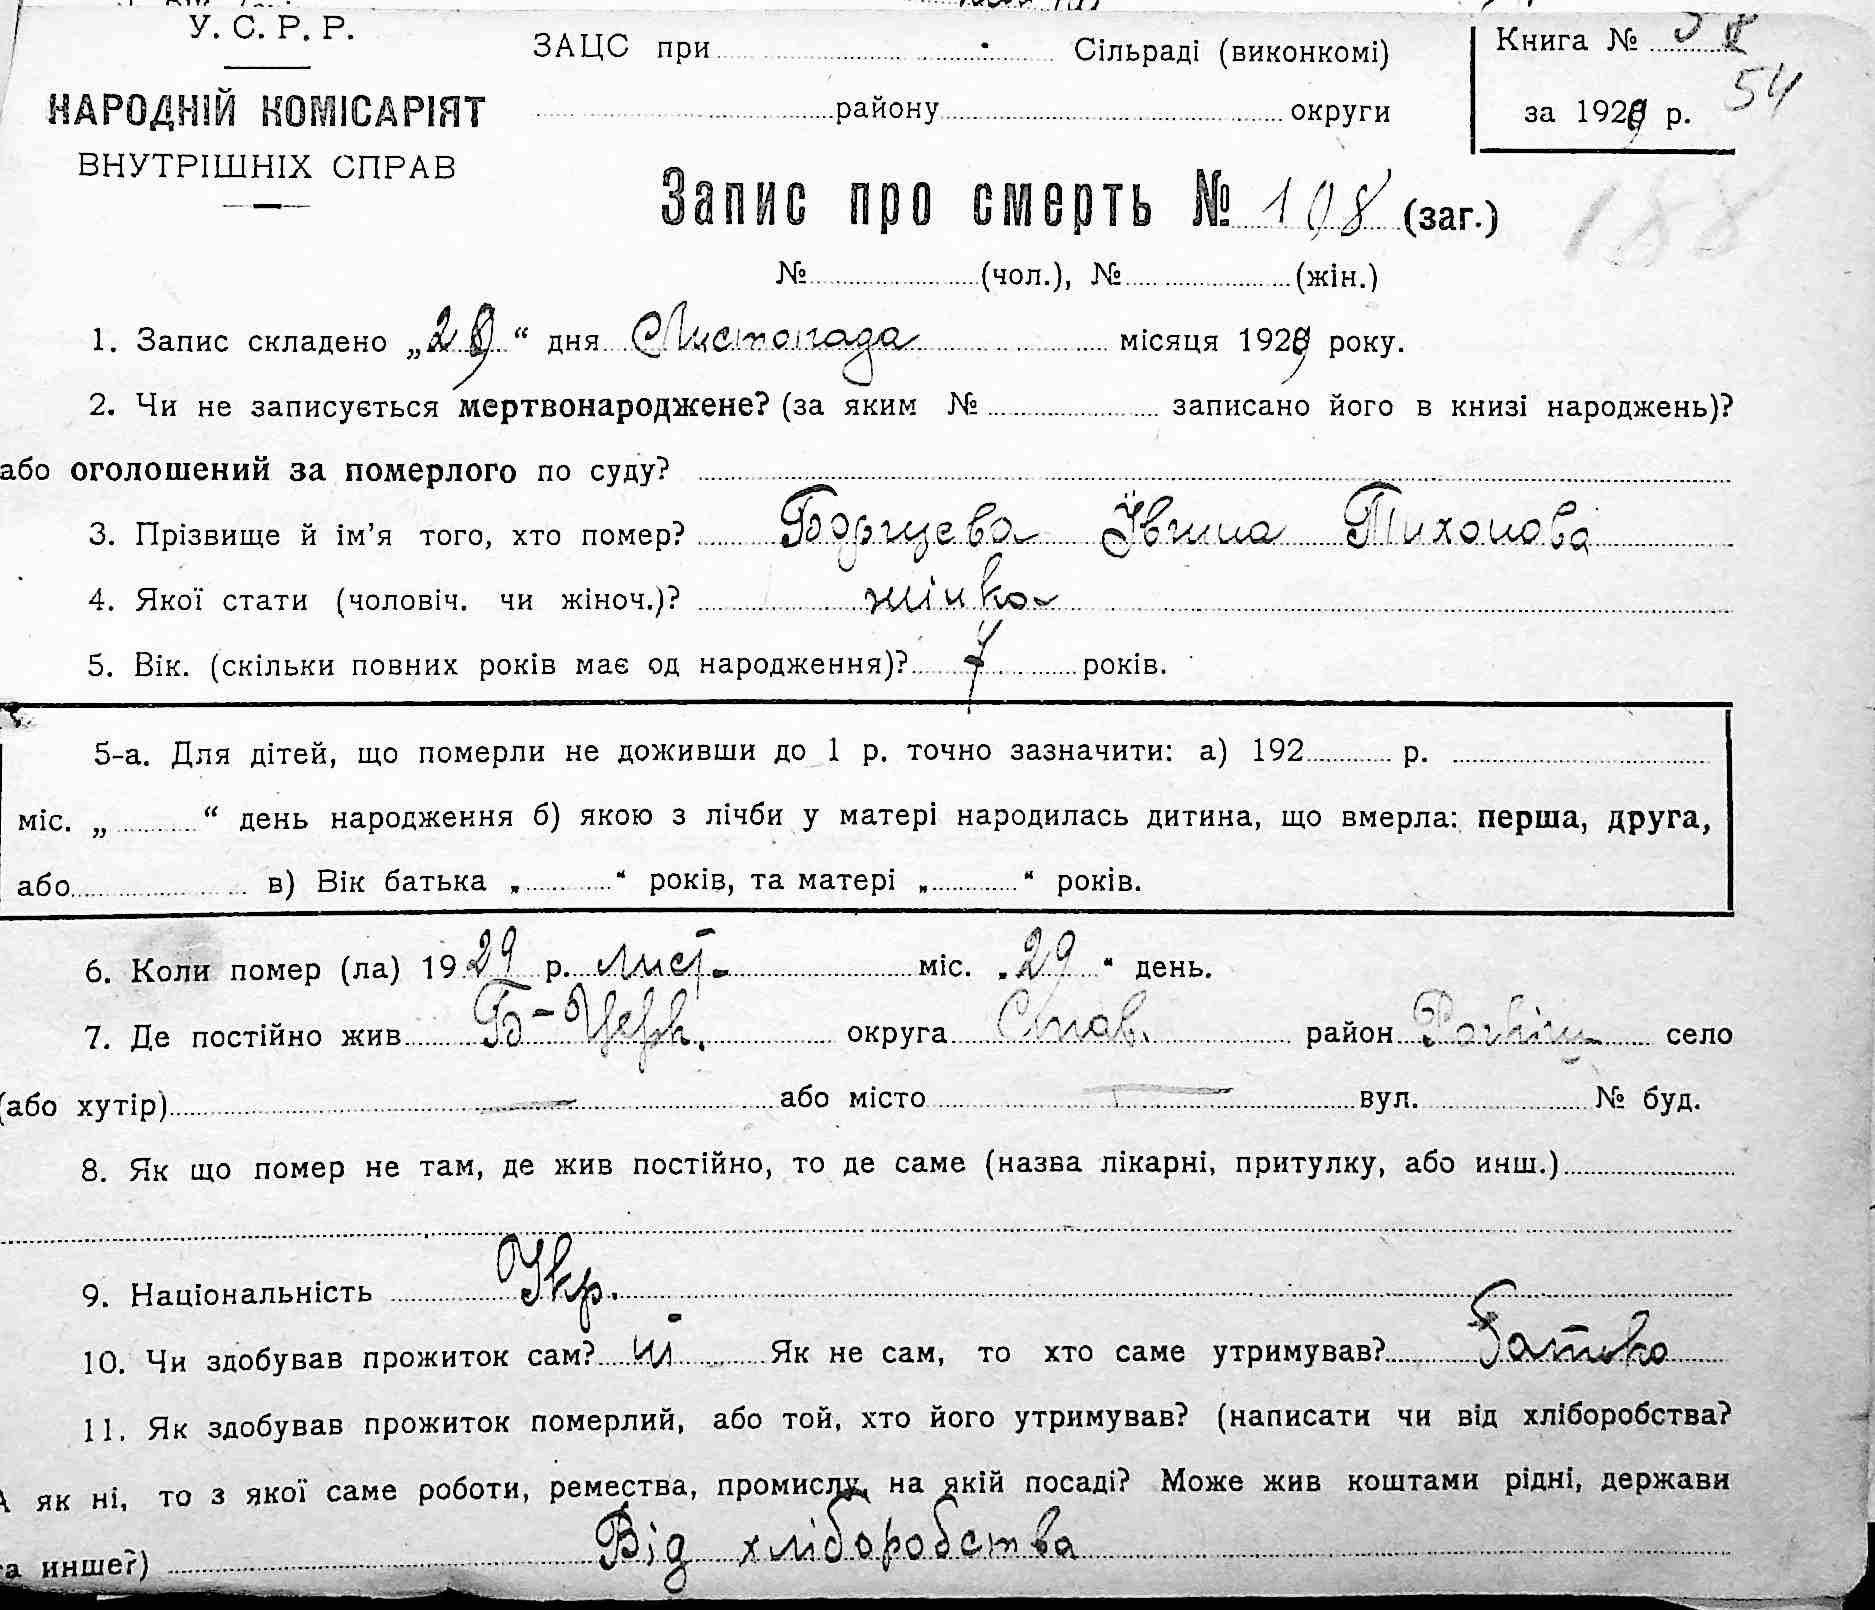 У. С. Р. Р.
НАРОДНІЙ КОМІСАРІЯТ
ВНУТРІШНІХ СПРАВ
ЗАЦС при Сільраді (виконкомі)
району округи
Книга №
54
за 1929 р.
Запис про смерть № 198 (заг.)
188
№ (чол.), № (жін.)
1. Запис складено „29“ дня Листопада місяця 1929 року.
2. Чи не записується мертвонароджене? (за яким № записано його в книзі народжень)?
або оголошений за померлого по суду?
3. Прізвище й ім’я того, хто помер? Борщева Ївгина Тихонова
4. Якої стати (чоловіч. чи жіноч.)? жінка
5. Вік. (скільки повних років має од народження)? років.
5-а. Для дітей, що померли не доживши до 1 р. точно зазначити: а) 192 р.
міс. „ “ день народження б) якою з лічби у матері народилась дитина, що вмерла: перша, друга,
або в) Вік батька „ “ років, та матері „ “ років.
6. Коли помер (ла) 1929 р. лист. міс. „29“ день.
7. Де постійно жив Б-Церк. округа Став. район село
(або хутір) — або місто — вул. № буд.
8. Як що помер не там, де жив постійно, то де саме (назва лікарні, притулку, або инш.)
9. Національність Укр.
10. Чи здобував прожиток сам? ні Як не сам, то хто саме утримував? Батько
11. Як здобував прожиток померлий, або той, хто його утримував? (написати чи від хліборобства?
А як ні, то з якої саме роботи, ремества, промислу, на якій посаді? Може жив коштами рідні, держави
та инше?) Від хліборобства